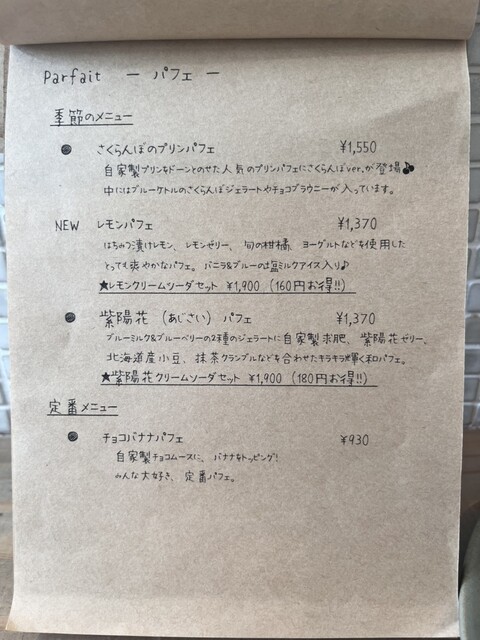 Parfait ー パフェ ー
季節のメニュー
● さくらんぼのプリンパフェ ¥1,550
自家製プリンをドーンとのせた人気のプリンパフェにさくらんぼver.が登場
中にはブルーケトルのさくらんぼジェラートやチョコブラウニーが入っています。
NEW レモンパフェ ¥1,370
はちみつ漬けレモン、レモンゼリー、旬の柑橘、ヨーグルトなどを使用した
とっても爽やかなパフェ。バニラ&ブルーの塩ミルクアイス入り♪
★レモンクリームソーダセット ¥1,900 (160円お得!!)
● 紫陽花 (あじさい) パフェ ¥1,370
ブルーミルク&ブルーベリーの2種のジェラートに自家製求肥、紫陽花ゼリー、
北海道産小豆、抹茶クランブルなどを合わせたキラキラ輝く和パフェ。
★紫陽花クリームソーダセット ¥1,900 (180円お得!!)
定番メニュー
● チョコバナナパフェ ¥930
自家製チョコムースに、バナナをトッピング!
みんな大好き、定番パフェ。